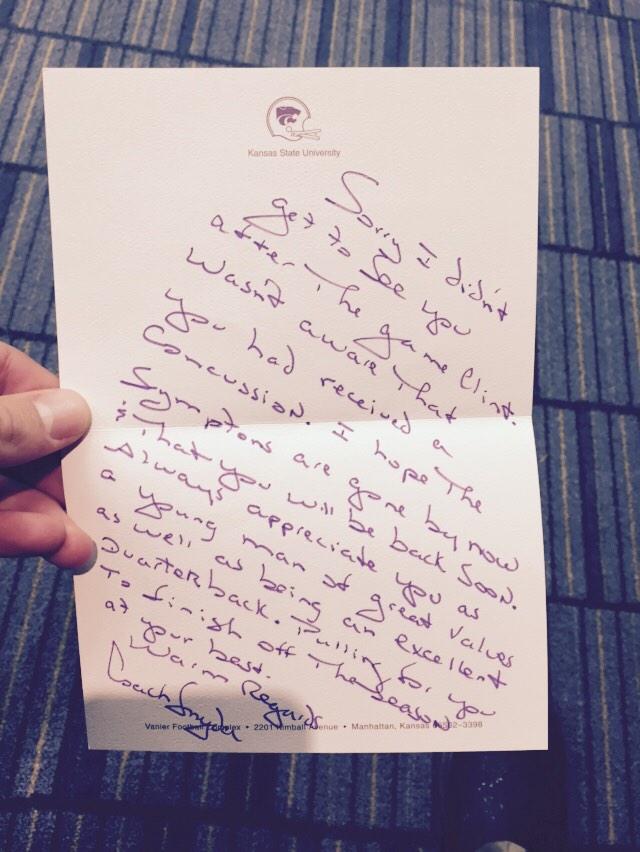 Kansas State University
Sorry I didn't
get to see you
after the game Clint.
Wasn't aware that
you had received a
Concussion. I hope the
symptons are gone by now
& that you will be back soon.
Always appreciate you as
a young man of great values
as well as being an excellent
Quarterback. Pulling for you
to finish off the season
at your best.
Warm Regards
Coach Snyder
Vanier Football Complex • 2201 Kimball Avenue • Manhattan, Kansas 66502-3398